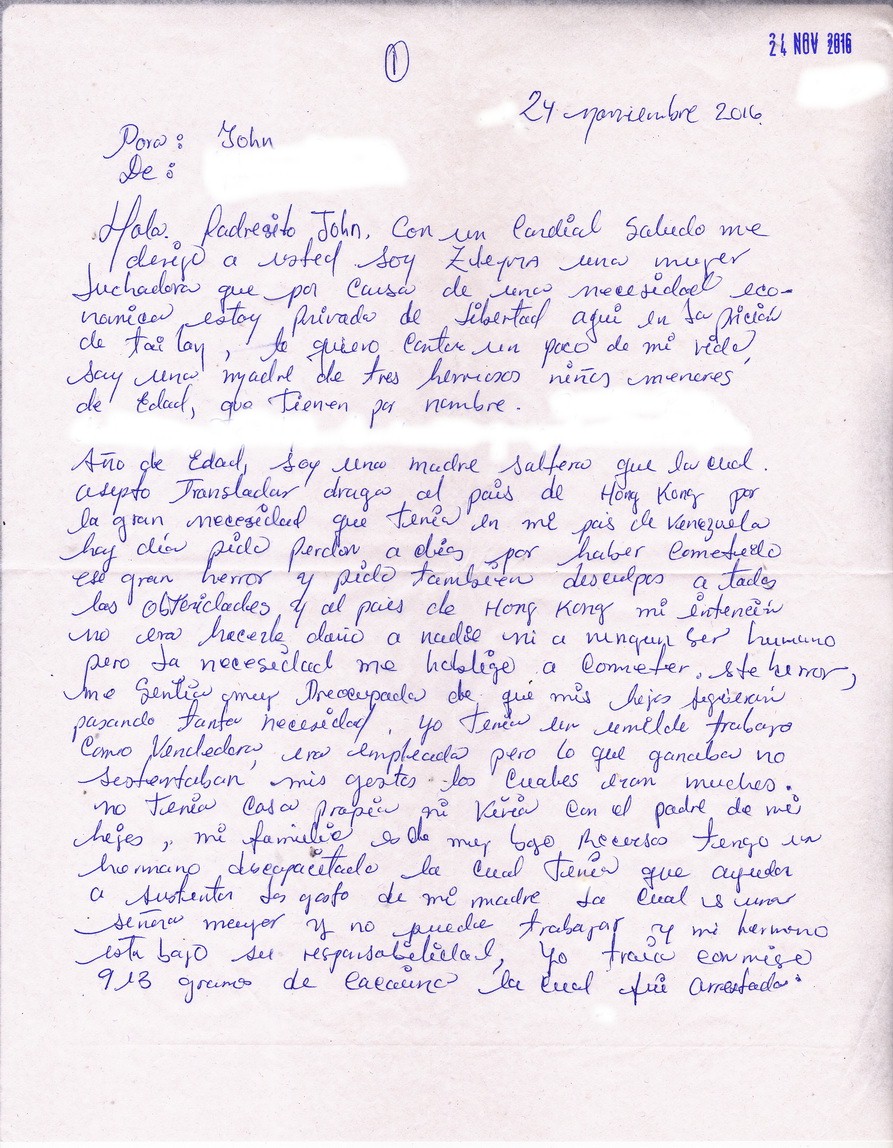 24 NOV 2016
1
24 noviembre 2016.
Para: John
De:
Hola. Padresito John. Con un Cordial Saludo me
dirijo a usted soy una mujer
luchadora que por causa de una necesidad eco-
nomica estoy privada de libertad aqui en la prición
de tai lan, le quiero contar un poco de mi vida,
Soy una madre de tres hermosos niños menores
de Edad, que tienen por nombre.
Año de Edad, soy una madre saltera que la cual.
asepto Transladar droga al pais de Hong Kong por
la gran necesidad que tenia en mi pais de Venezuela
hoy dia pido Perdon a dios por haber cometido
ese gran herror y pido también desculpas a todas
las obtoridades y al pais de Hong Kong mi intención
no era hacerle daño a nadie ni a ningun ser humano
pero la necesidad me hoblige a cometer. ste herror,
me Sentia muy Preocupada de que mis hijos sigieran
pasando tanta necesidad, yo tenia un umilde trabajo
Como Vendedora, era empleada pero lo que ganaba no
sustentaban mis gastos los cuales eran muchos.
no tenia casa propia ni vivia con el padre de mi
hijos, mi familia es de muy bajo Recursos tengo un
hermano discapacitado la cual tenia que ayudar
a sustentar los gasto de mi madre la cual es una
señora mayor y no puede trabajar y mi hermano
esta bajo su responsabilidad, yo traia conmigo
913 gramos de cacaina la cual fui arrestada.